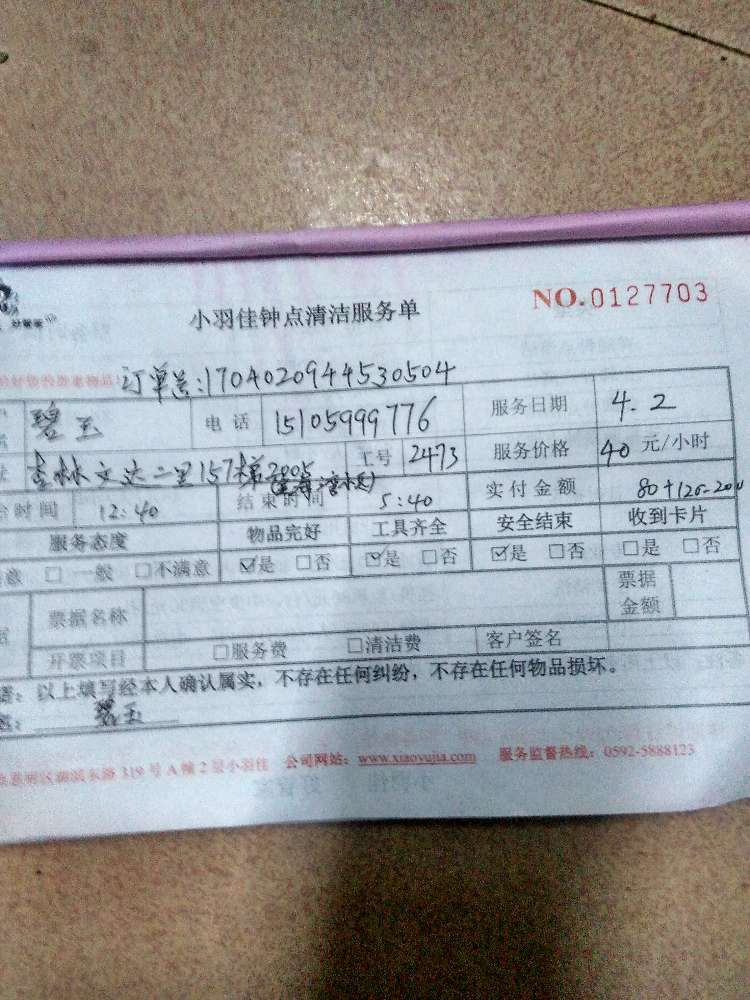 小羽佳钟点清洁服务单 NO.0127703
订单号:1704020944530504
碧玉 电话 15105999776 服务日期 4.2
杏林文达二里157梯2005 工号 2473 服务价格 40 元/小时
时间 12:40 结束时间 5:40 实付金额 80+120=200
服务态度 物品完好 工具齐全 安全结束 收到卡片
意 □ 一般 □不满意 ☑是 □否 ☑是 □否 ☑是 □否 □是 □否
票据名称 票据金额
开票项目 □服务费 □清洁费 客户签名
署：以上填写经本人确认属实，不存在任何纠纷，不存在任何物品损坏。
碧玉
湖滨东路 319 号 A 幢 2 层小羽佳 公司网站：www.xiaoyujia.com 服务监督热线：0592-5888123